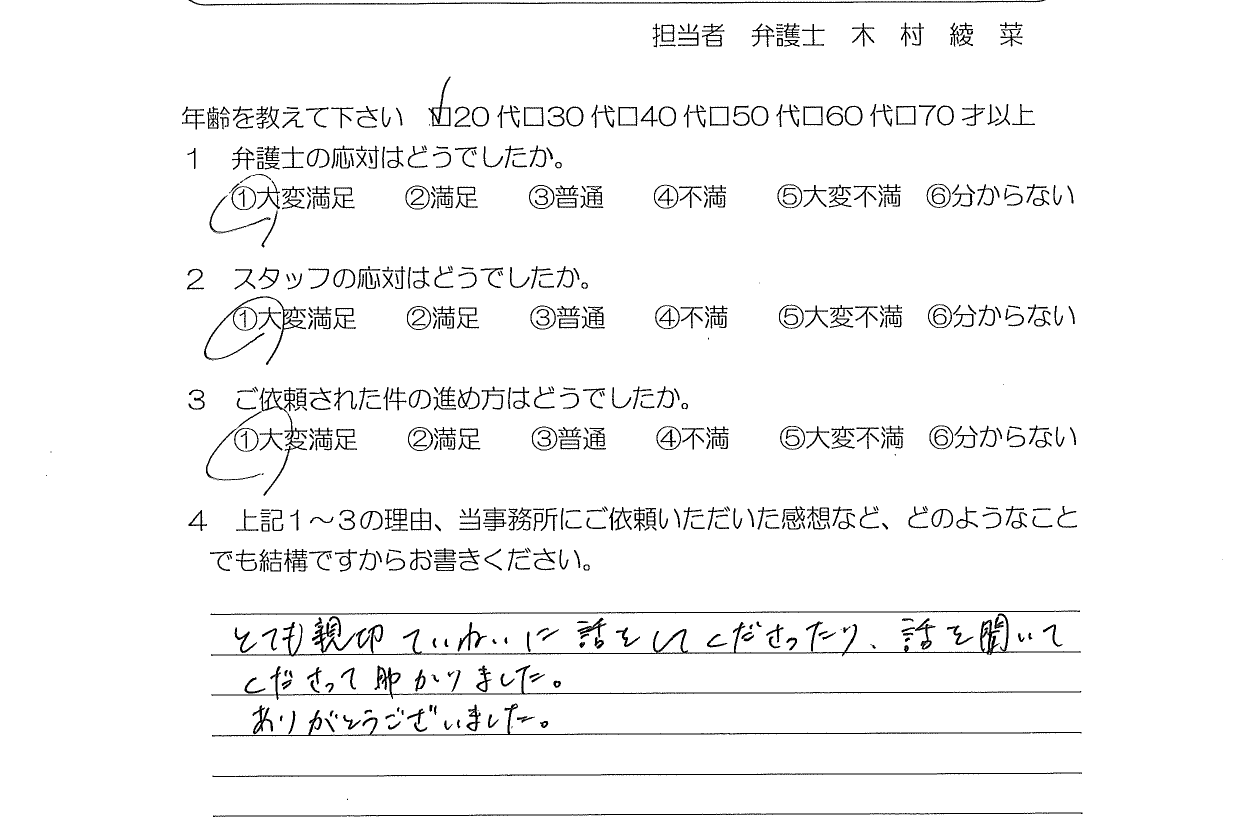 担当者 弁護士 木 村 綾 菜
年齢を教えて下さい ☑20代□30代□40代□50代□60代□70才以上
1 弁護士の応対はどうでしたか。
①大変満足 ②満足 ③普通 ④不満 ⑤大変不満 ⑥分からない
2 スタッフの応対はどうでしたか。
①大変満足 ②満足 ③普通 ④不満 ⑤大変不満 ⑥分からない
3 ご依頼された件の進め方はどうでしたか。
①大変満足 ②満足 ③普通 ④不満 ⑤大変不満 ⑥分からない
4 上記1~3の理由、当事務所にご依頼いただいた感想など、どのようなこと
でも結構ですからお書きください。
とても親切ていねいに話をしてくださったり、話を聞いて
くださって助かりました。
ありがとうございました。